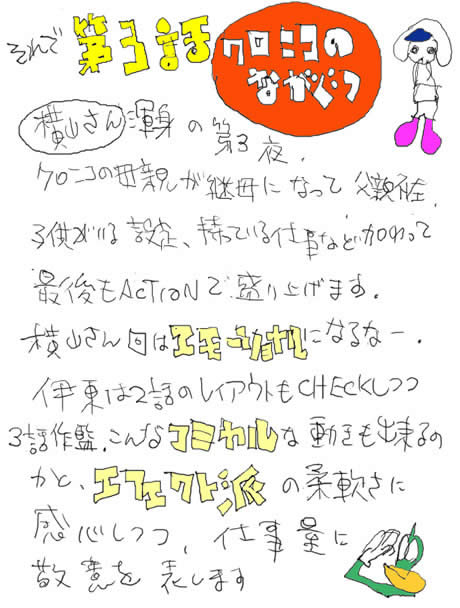 それで 第3話 クロニコの
ながぐつ
横山さん渾身の第3夜.
クロニコの母親が継母になって 父親不在,
子供がいる設定、持っている仕事など加わって
最後もACTIONで盛り上げます.
横山さん回はエモーショナルになるなー.
伊東は2話のレイアウトもCHECKしつつ
3話作監.こんなコミカルな動きも出来るの
かと、エフェクト派の柔軟さに
感心しつつ、仕事量に
敬意を表します